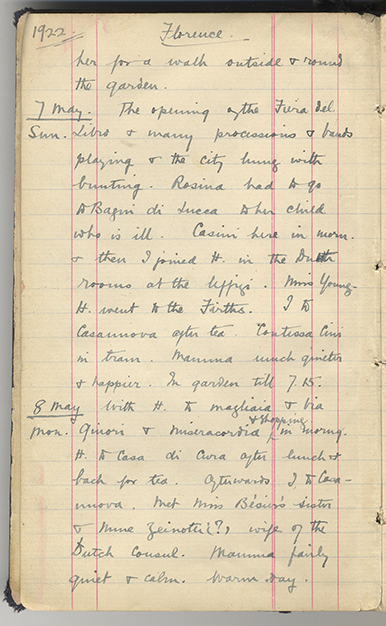 1922 Florence.
her for a walk outside & round
the garden.
7 May. The opening of the Fiera del
Sun. Libro & many processions & bands
playing & the city hung with
bunting. Rosina had to go
to Bagni di Lucca to her child
who is ill. Casini here in morn.
& then I joined H. in the Dutch
rooms at the Uffizi. Miss Young.
H. went to the Firths. I to
Casannova after tea. Contessa Cini
in tram. Mamma much quieter
& happier. In garden till 7.15.
8 May with H. to magliaia & via
Mon. Ginori & Misericordia & shopping in morng.
H. to Casa di Cura after lunch &
back for tea. Afterwards I to Casa-
nnova. Met Miss Bésier's sister
& Mme Zeinotti(?) wife of the
Dutch Consul. Mamma fairly
quiet & calm. Warm day.